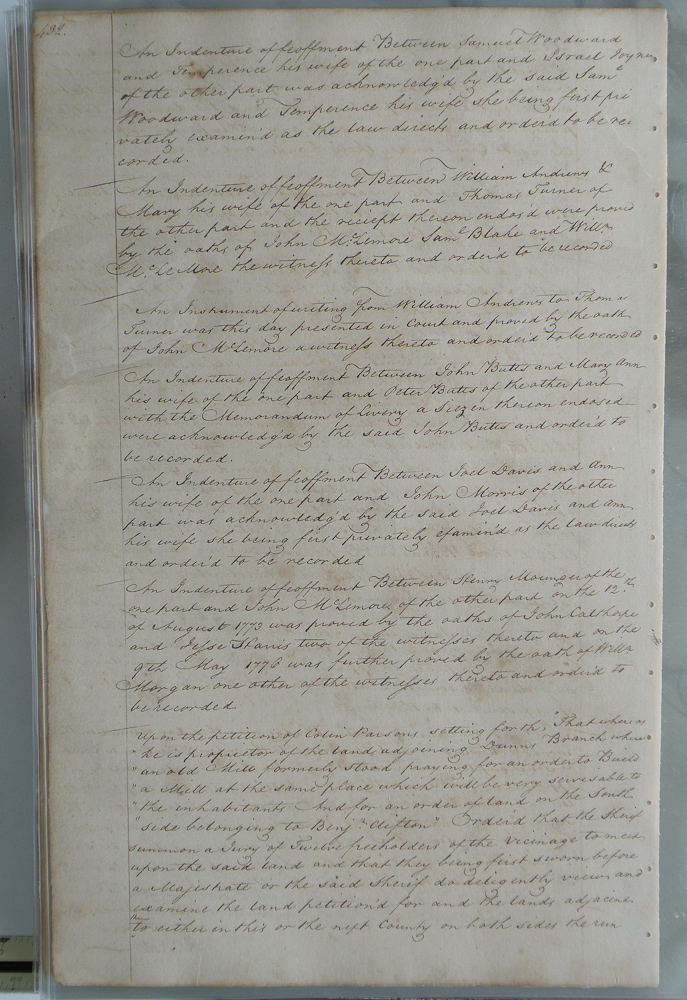 432.
An Indenture of feoffment Between Samuel Woodward
and Temperence his wife of the one part and Israel Joyner
of the other part was acknowledg'd by the said Saml
Woodward and Temperence his wife she being first pri
vately examin'd as the law directs and order'd to be re
corded.
An Indenture of feoffment Between William Andrews &
Mary his wife of the one part and Thomas Turner of
the other part and the reciept thereon endos'd were proved
by the oaths of John McLemore Saml Blake and Willm
McLeMore the witness thereto and order'd to be recorded
An Instrument of writing from William Andrews to Thomas
Turner was this day presented in Court and proved by the oath
of John McLemore a witness thereto and order'd to be recorded
An Indenture of feoffment Between John Butts and Mary Ann
his wife of the one part and Peter Butts of the other part
with the Memorandum of Livery a Siezen thereon endosed
were acknowledg'd by the said John Butts and order'd to
be recorded.
An Indenture of feoffment Between Joel Davis and Ann
his wife of the one part and John Morris of the other
part was acknowledg'd by the said Joel Davis and Ann
his wife she being first privately examin'd as the law directs
and order'd to be recorded
An Indenture of feoffment Between Henry Mounger of the
one part and John McLemore of the other part on the 12th
of August 1773 was proved by the oaths of John Calthope
and Jesse Harris two of the witnesses thereto and on the
9th May 1776 was further proved by the oath of Willm
Morgan one other of the witnesses thereto and order'd to
be recorded
Upon the petition of Colin Parsons setting forth, "That whereas
"he is proprietor of the land adjoining Dunns Branch where
"an old Mill formerly stood praying for an order to Build
"a Mill at the same place which will be very servisable to
"the inhabitants And for an order of land on the South
"side belonging to Benj. Clifton" Order'd that the Sherif
summon a Jury of Twelve freeholders of the Vicinage to meet
upon the said land and that they being first sworn before
a Majestrate or the said Sherif do deligently view and
examine the land petition'd for and the lands adjacent
to either in this or the next County on both sides the run